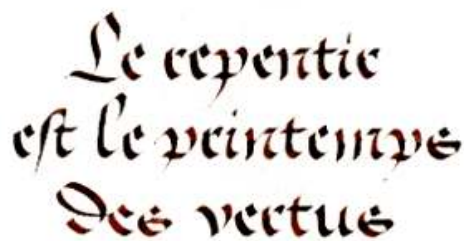 Le repentir
est le printemps
des vertus